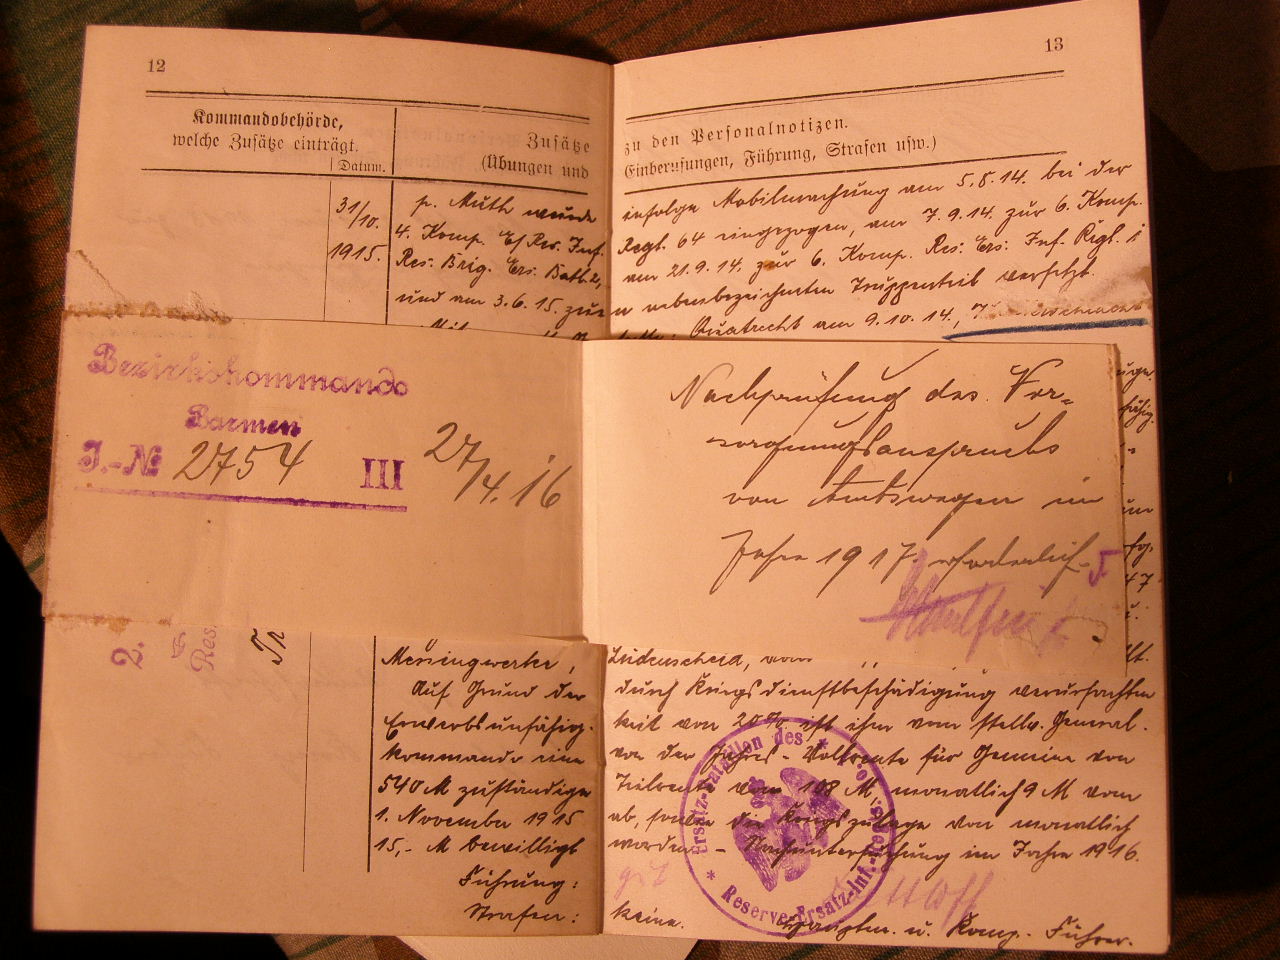 12
13
Kommandobehörde,
welche Zusätze einträgt.
Datum.
Zusätze zu den Personalnotizen.
(Übungen und Einberufungen, Führung, Strafen usw.)
31/10.
1915.
p. Muth wurde infolge Mobilmachung am 5.8.14. bei der
4. Komp. E/Res. Inf. Regt. 64 eingezogen, am 7.9.14. zur 6. Komp.
Res. Brig. Ers. Batl. 2, am 21.9.14. zur 6. Komp. Res. Ers. Inf. Regt. 1
und am 3.6.15. zum nebenbezeichneten Truppenteil versetzt.
am 9.10.14,
Bezirkskommando
Barmen
J.-№ 2754 III
27/4.16
Nachprüfung des Ver-
sorgungsanspruchs
von Amtswegen im
Jahre 1917 erforderlich.
2.
Res.
Messingwerke, Lüdenscheid,
Auf Grund der durch Kriegsdienstbeschädigung verursachten
Erwerbsunfähig- keit von 20% ist ihm vom stellv. General-
kommando eine von der Jahres-Vollrente für Gemeine von
540 M zuständige Teilrente von 108 M monatlich 9 M vom
1. November 1915 ab, sowie die Kriegszulage von monatlich
15,- M bewilligt worden. - Nachuntersuchung im Jahre 1916.
Führung: gut
Strafen: keine.
Hauptm. u. Komp.-Führer.
Ersatz-Bataillon des
Reserve-Ersatz-Inf.-Regts.